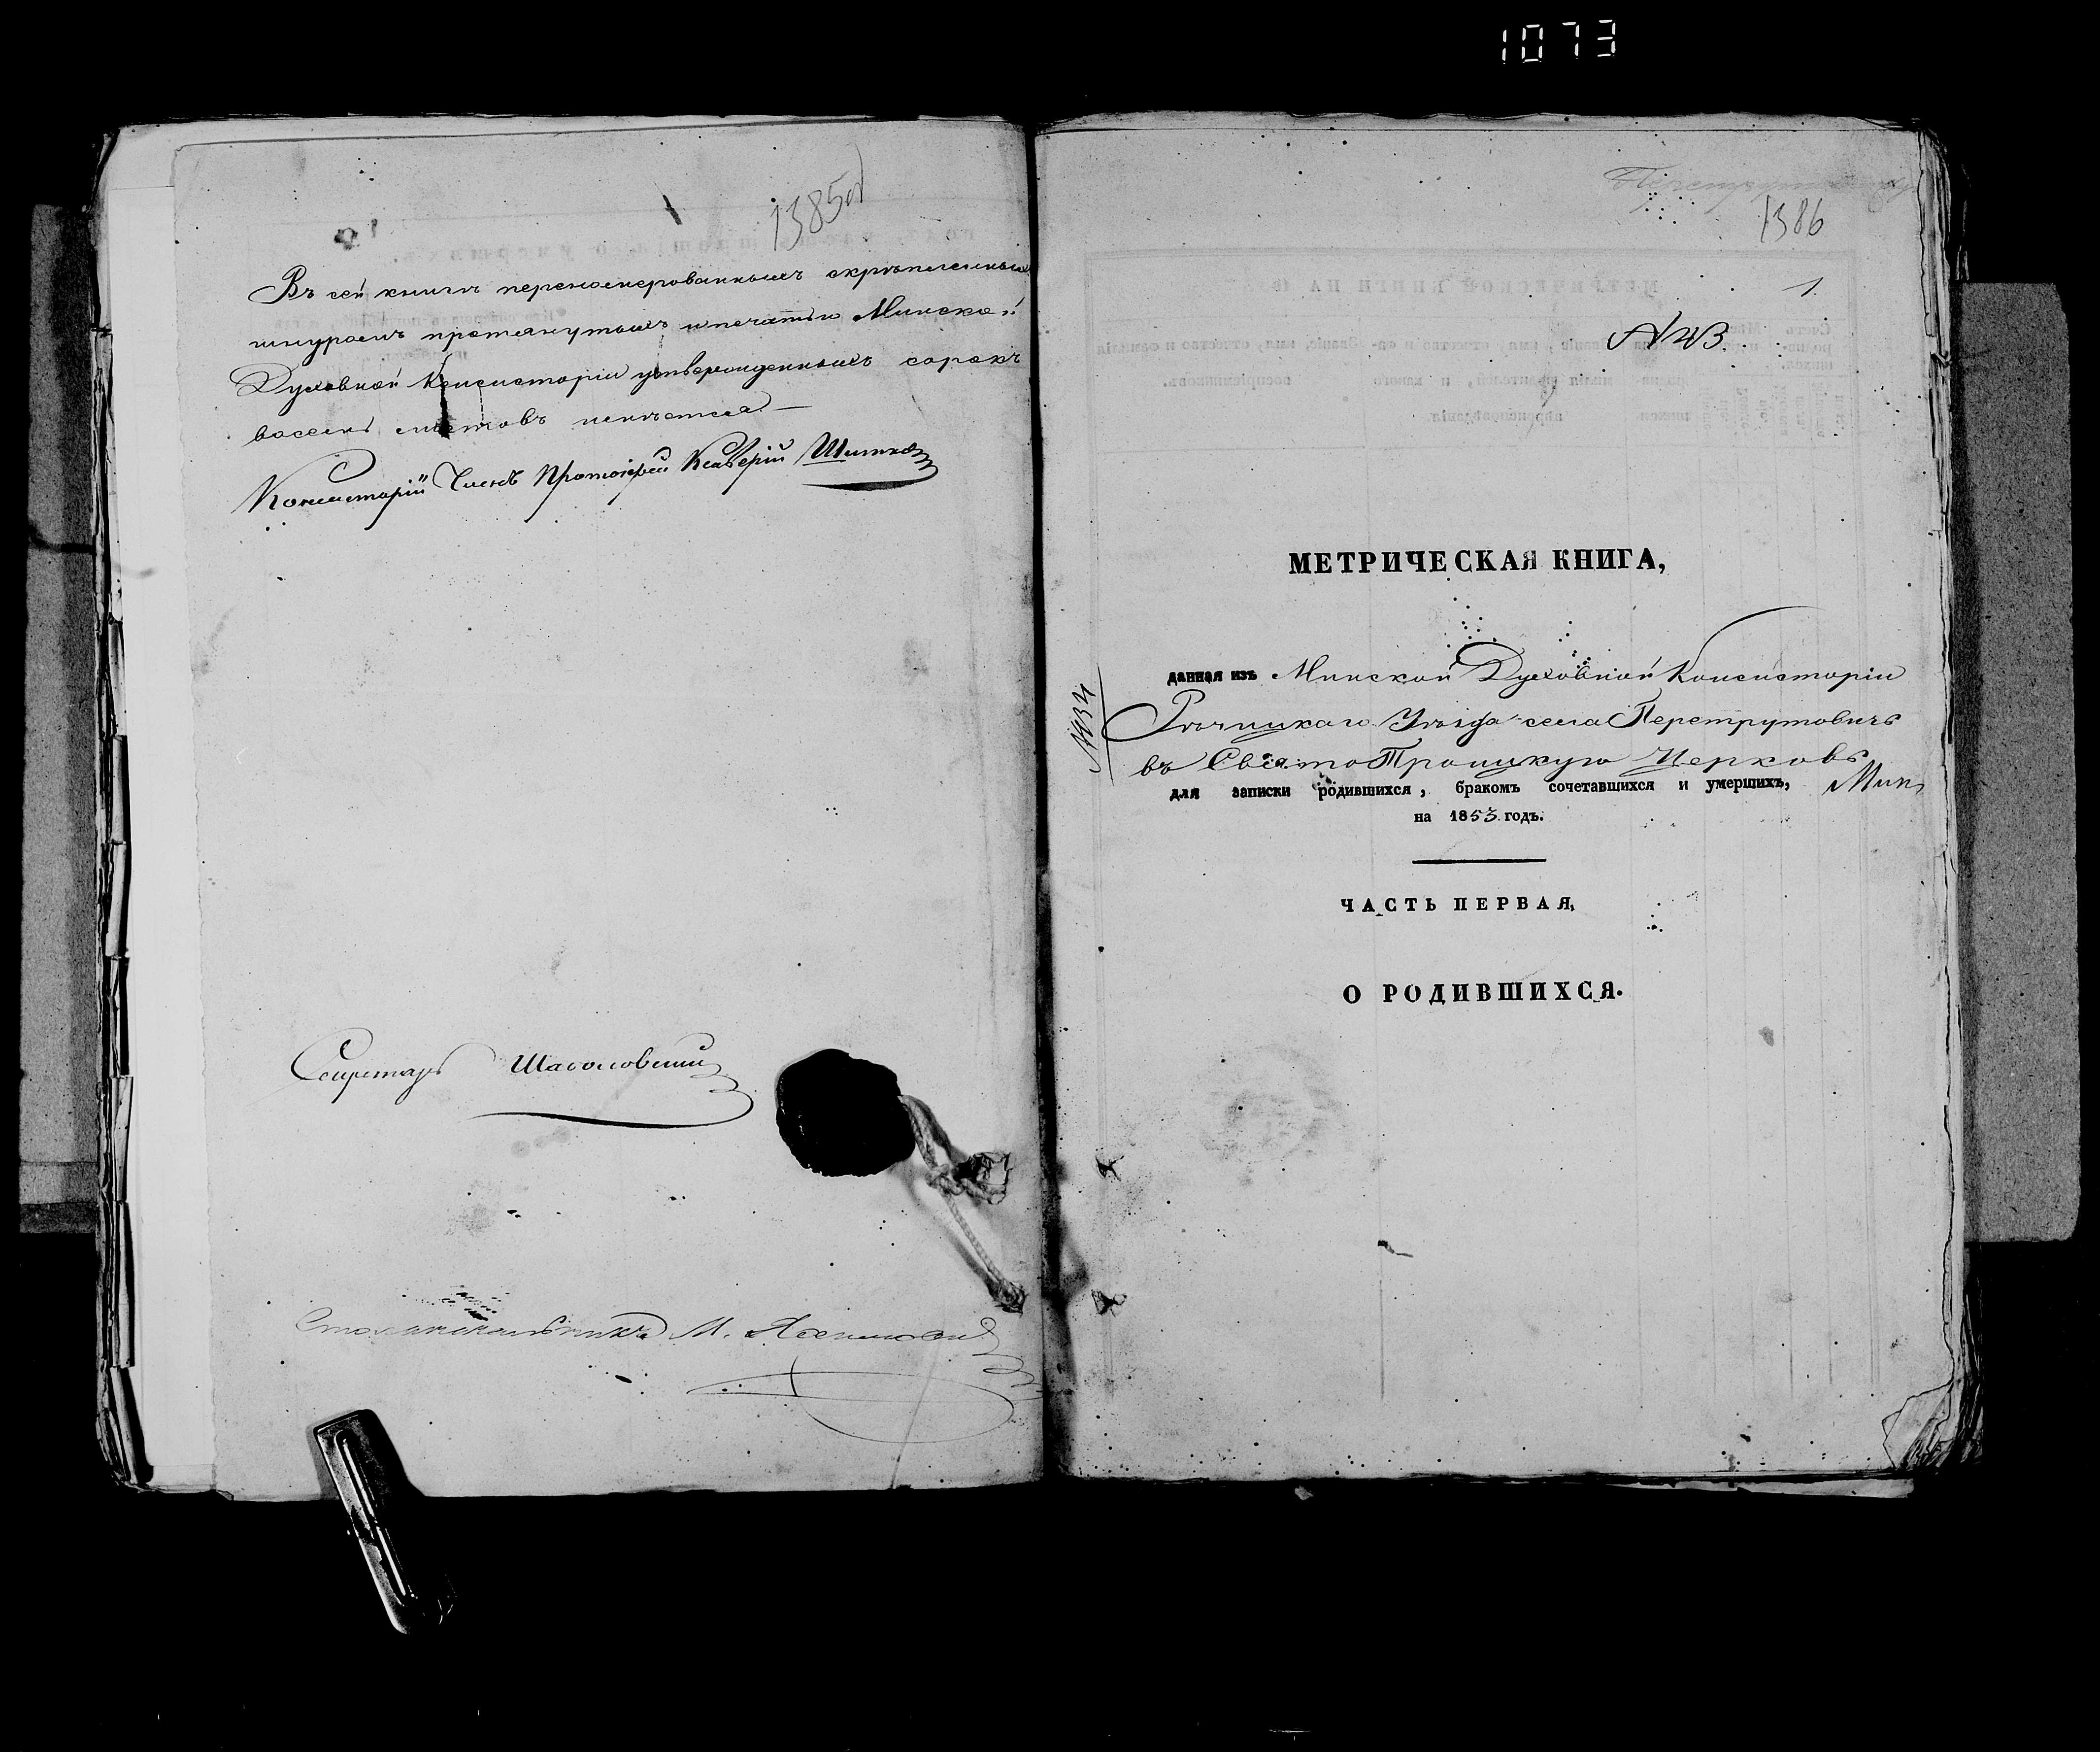 1073
1385об
Въ сей книги перенумерованныхъ скрѣпленныхъ
шнуромъ протянутыхъ и печатью Минской
Духовной Консисторіи утвержденныхъ сорокъ
восемь листовъ имѣется.—
Консисторіи Членъ Протоіерей Ксаверій
Секретарь
Столоначальникъ М.
1386
1.
МЕТРИЧЕСКАЯ КНИГА,
данная изъ Минской Духовной Консисторіи
Рѣчицкаго Уѣзда села Перетрутовичъ
въ Свято Троицкую Церковь
для записки родившихся, бракомъ сочетавшихся и умершихъ,
на 1853 годъ.
ЧАСТЬ ПЕРВАЯ,
О РОДИВШИХСЯ.